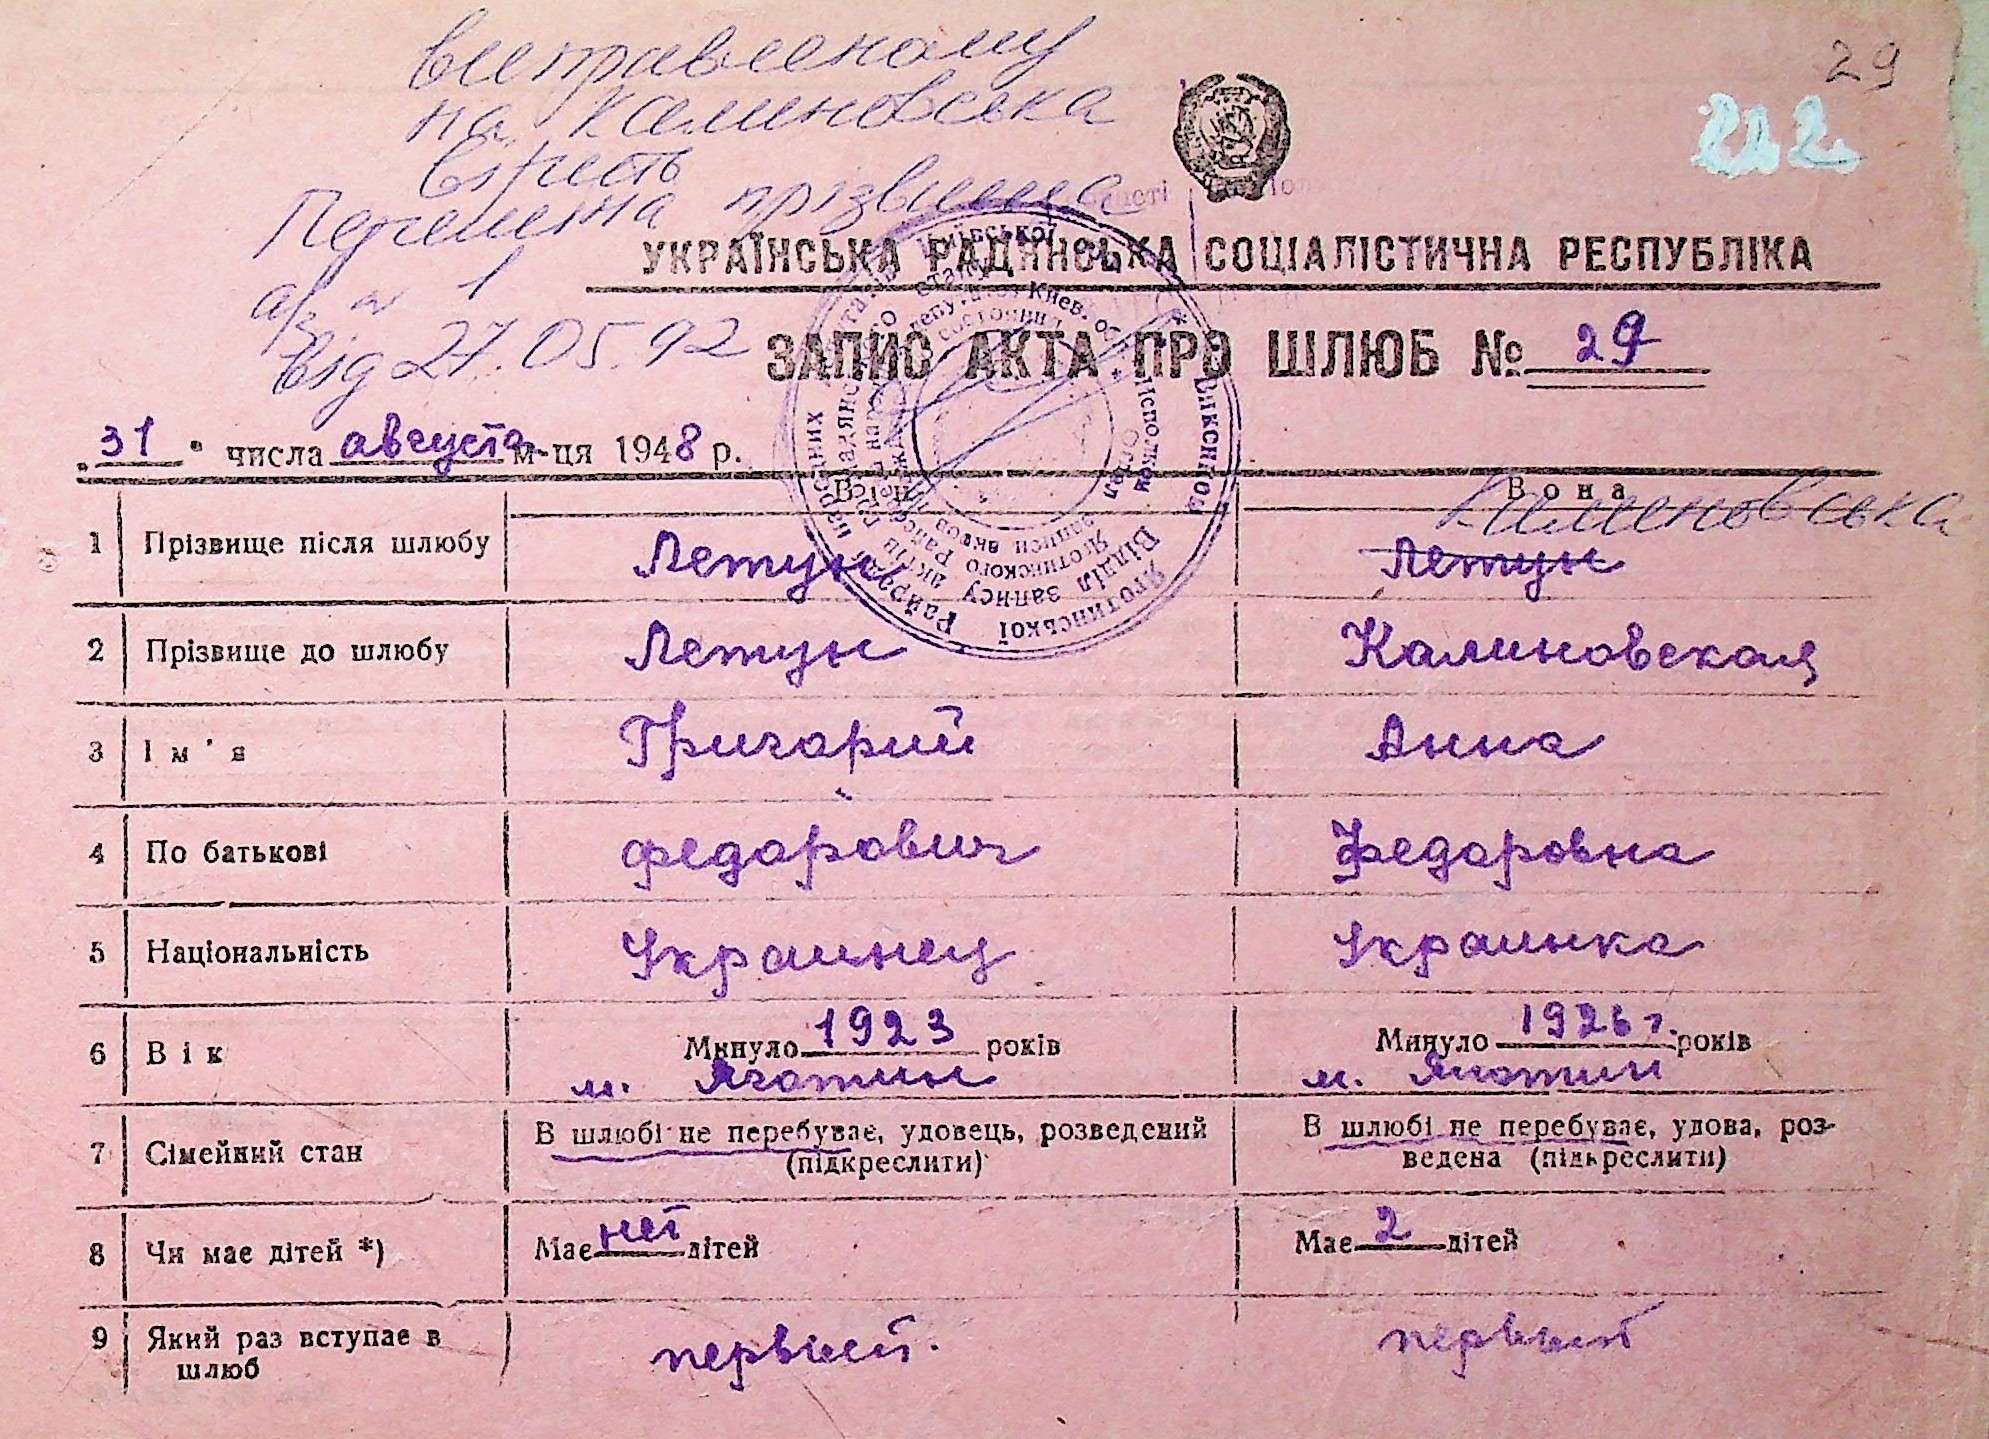 29
222
виправленому
на Калиновська
вірить
Переміна прізвища
а/з № 1
від 27.05.92
УКРАЇНСЬКА РАДЯНСЬКА СОЦІАЛІСТИЧНА РЕСПУБЛІКА
ЗАПИС АКТА ПРО ШЛЮБ № 29
„31" числа августа м-ця 1948 р.
Він Вона
Калиновська
1 Прізвище після шлюбу Летун Летун
2 Прізвище до шлюбу Летун Калиновская
3 Ім'я Григорий Анна
4 По батькові Федорович Федоровна
5 Національність Украинец Украинка
6 Вік Минуло 1923 років Минуло 1926 г. років
м. Яготин м. Яготин
7 Сімейний стан В шлюбі не перебуває, удовець, розведений (підкреслити) В шлюбі не перебуває, удова, роз-
ведена (підкреслити)
8 Чи має дітей *) Має нет дітей Має 2 дітей
9 Який раз вступає в первый. первый
шлюб